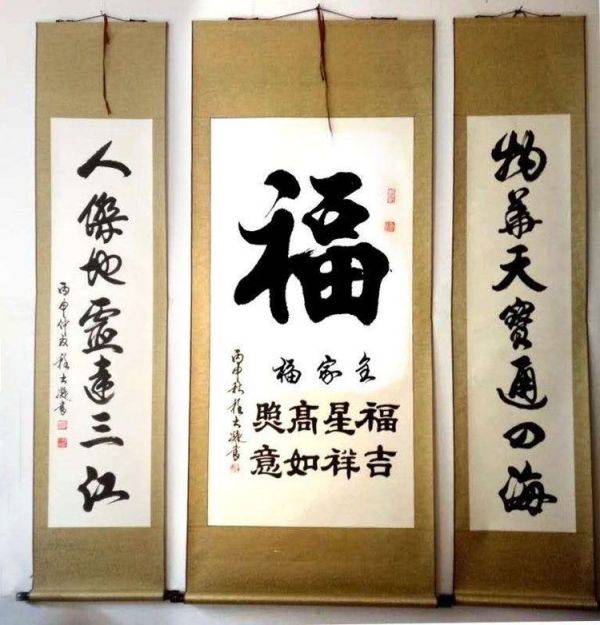 物華天寶通四海
福
全家福
福星髙照
吉祥如意
丙申秋程大書
人傑地靈達三江
丙申仲秋程大書